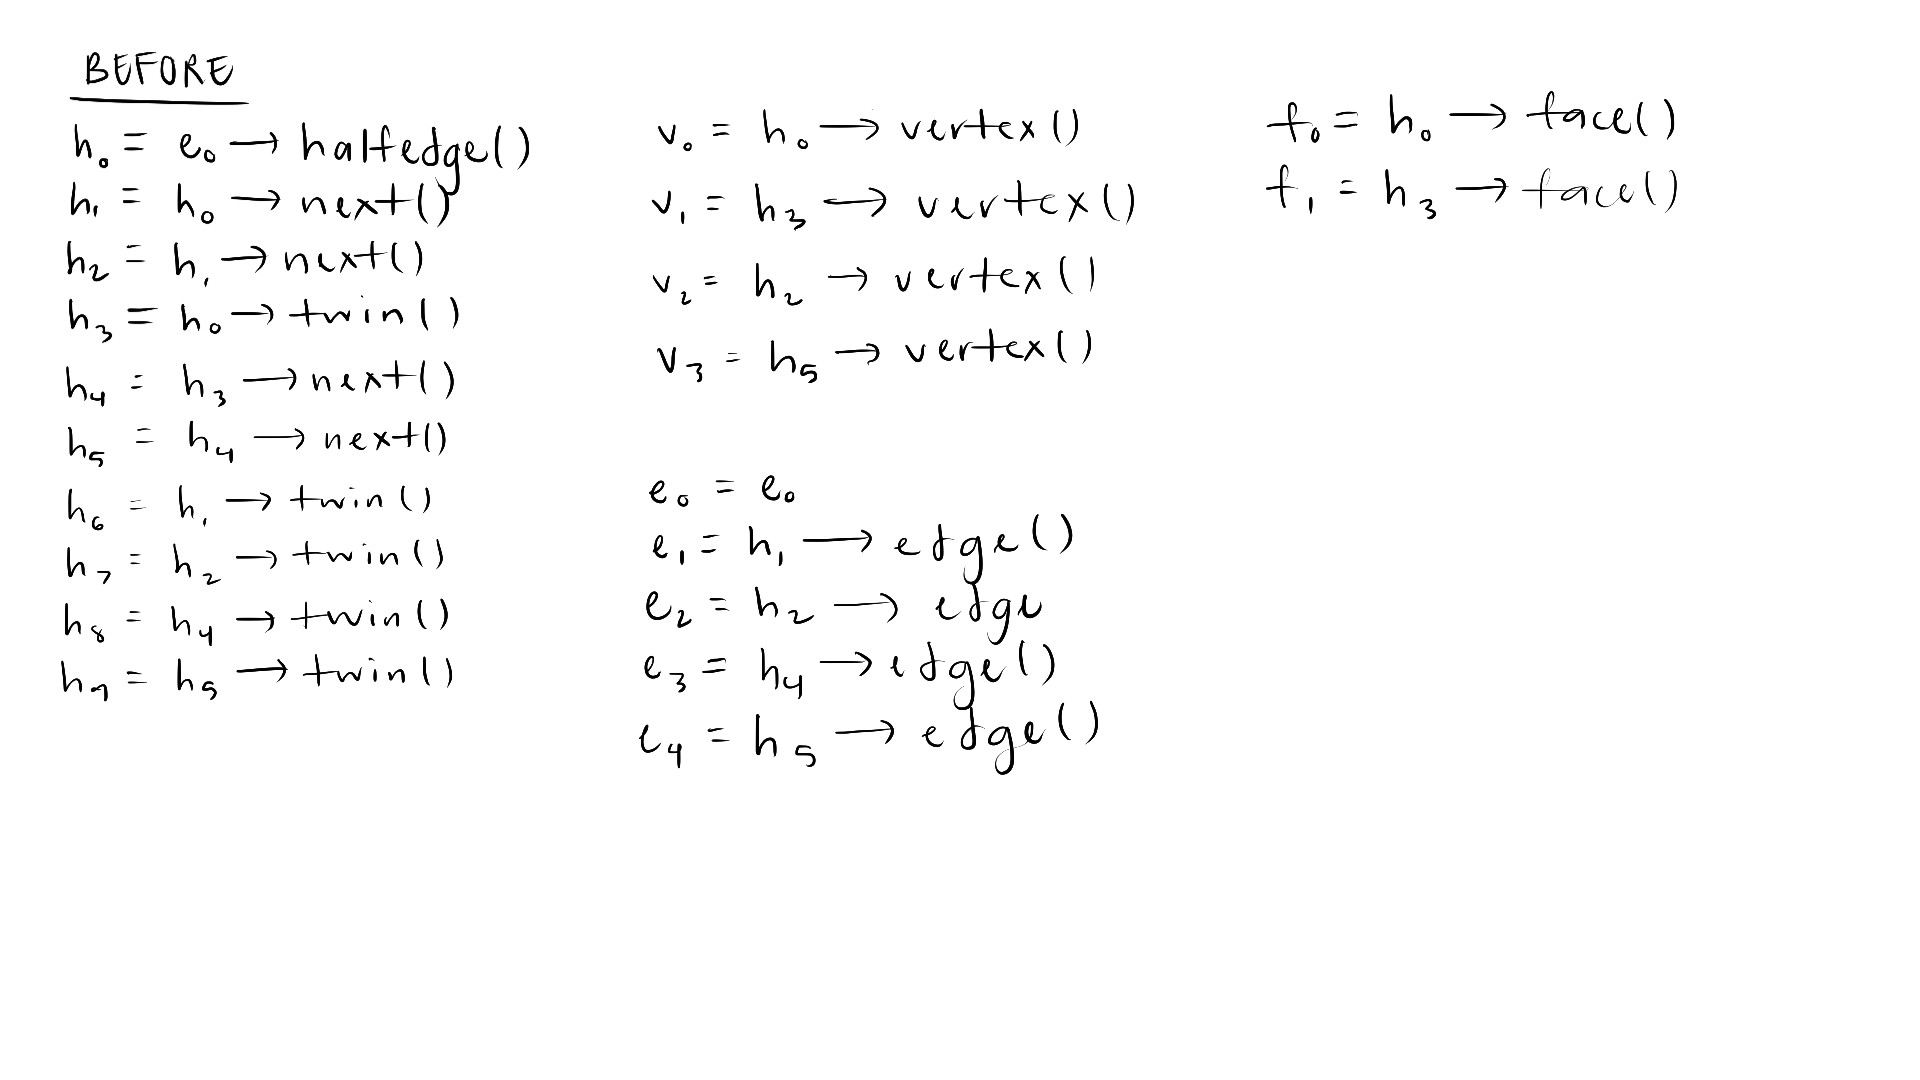 BEFORE
h₀ = e₀ → halfedge()
h₁ = h₀ → next()
h₂ = h₁ → next()
h₃ = h₀ → twin()
h₄ = h₃ → next()
h₅ = h₄ → next()
h₆ = h₁ → twin()
h₇ = h₂ → twin()
h₈ = h₄ → twin()
h₉ = h₅ → twin()
v₀ = h₀ → vertex()
v₁ = h₃ → vertex()
v₂ = h₂ → vertex()
v₃ = h₅ → vertex()
e₀ = e₀
e₁ = h₁ → edge()
e₂ = h₂ → edge
e₃ = h₄ → edge()
e₄ = h₅ → edge()
f₀ = h₀ → face()
f₁ = h₃ → face()